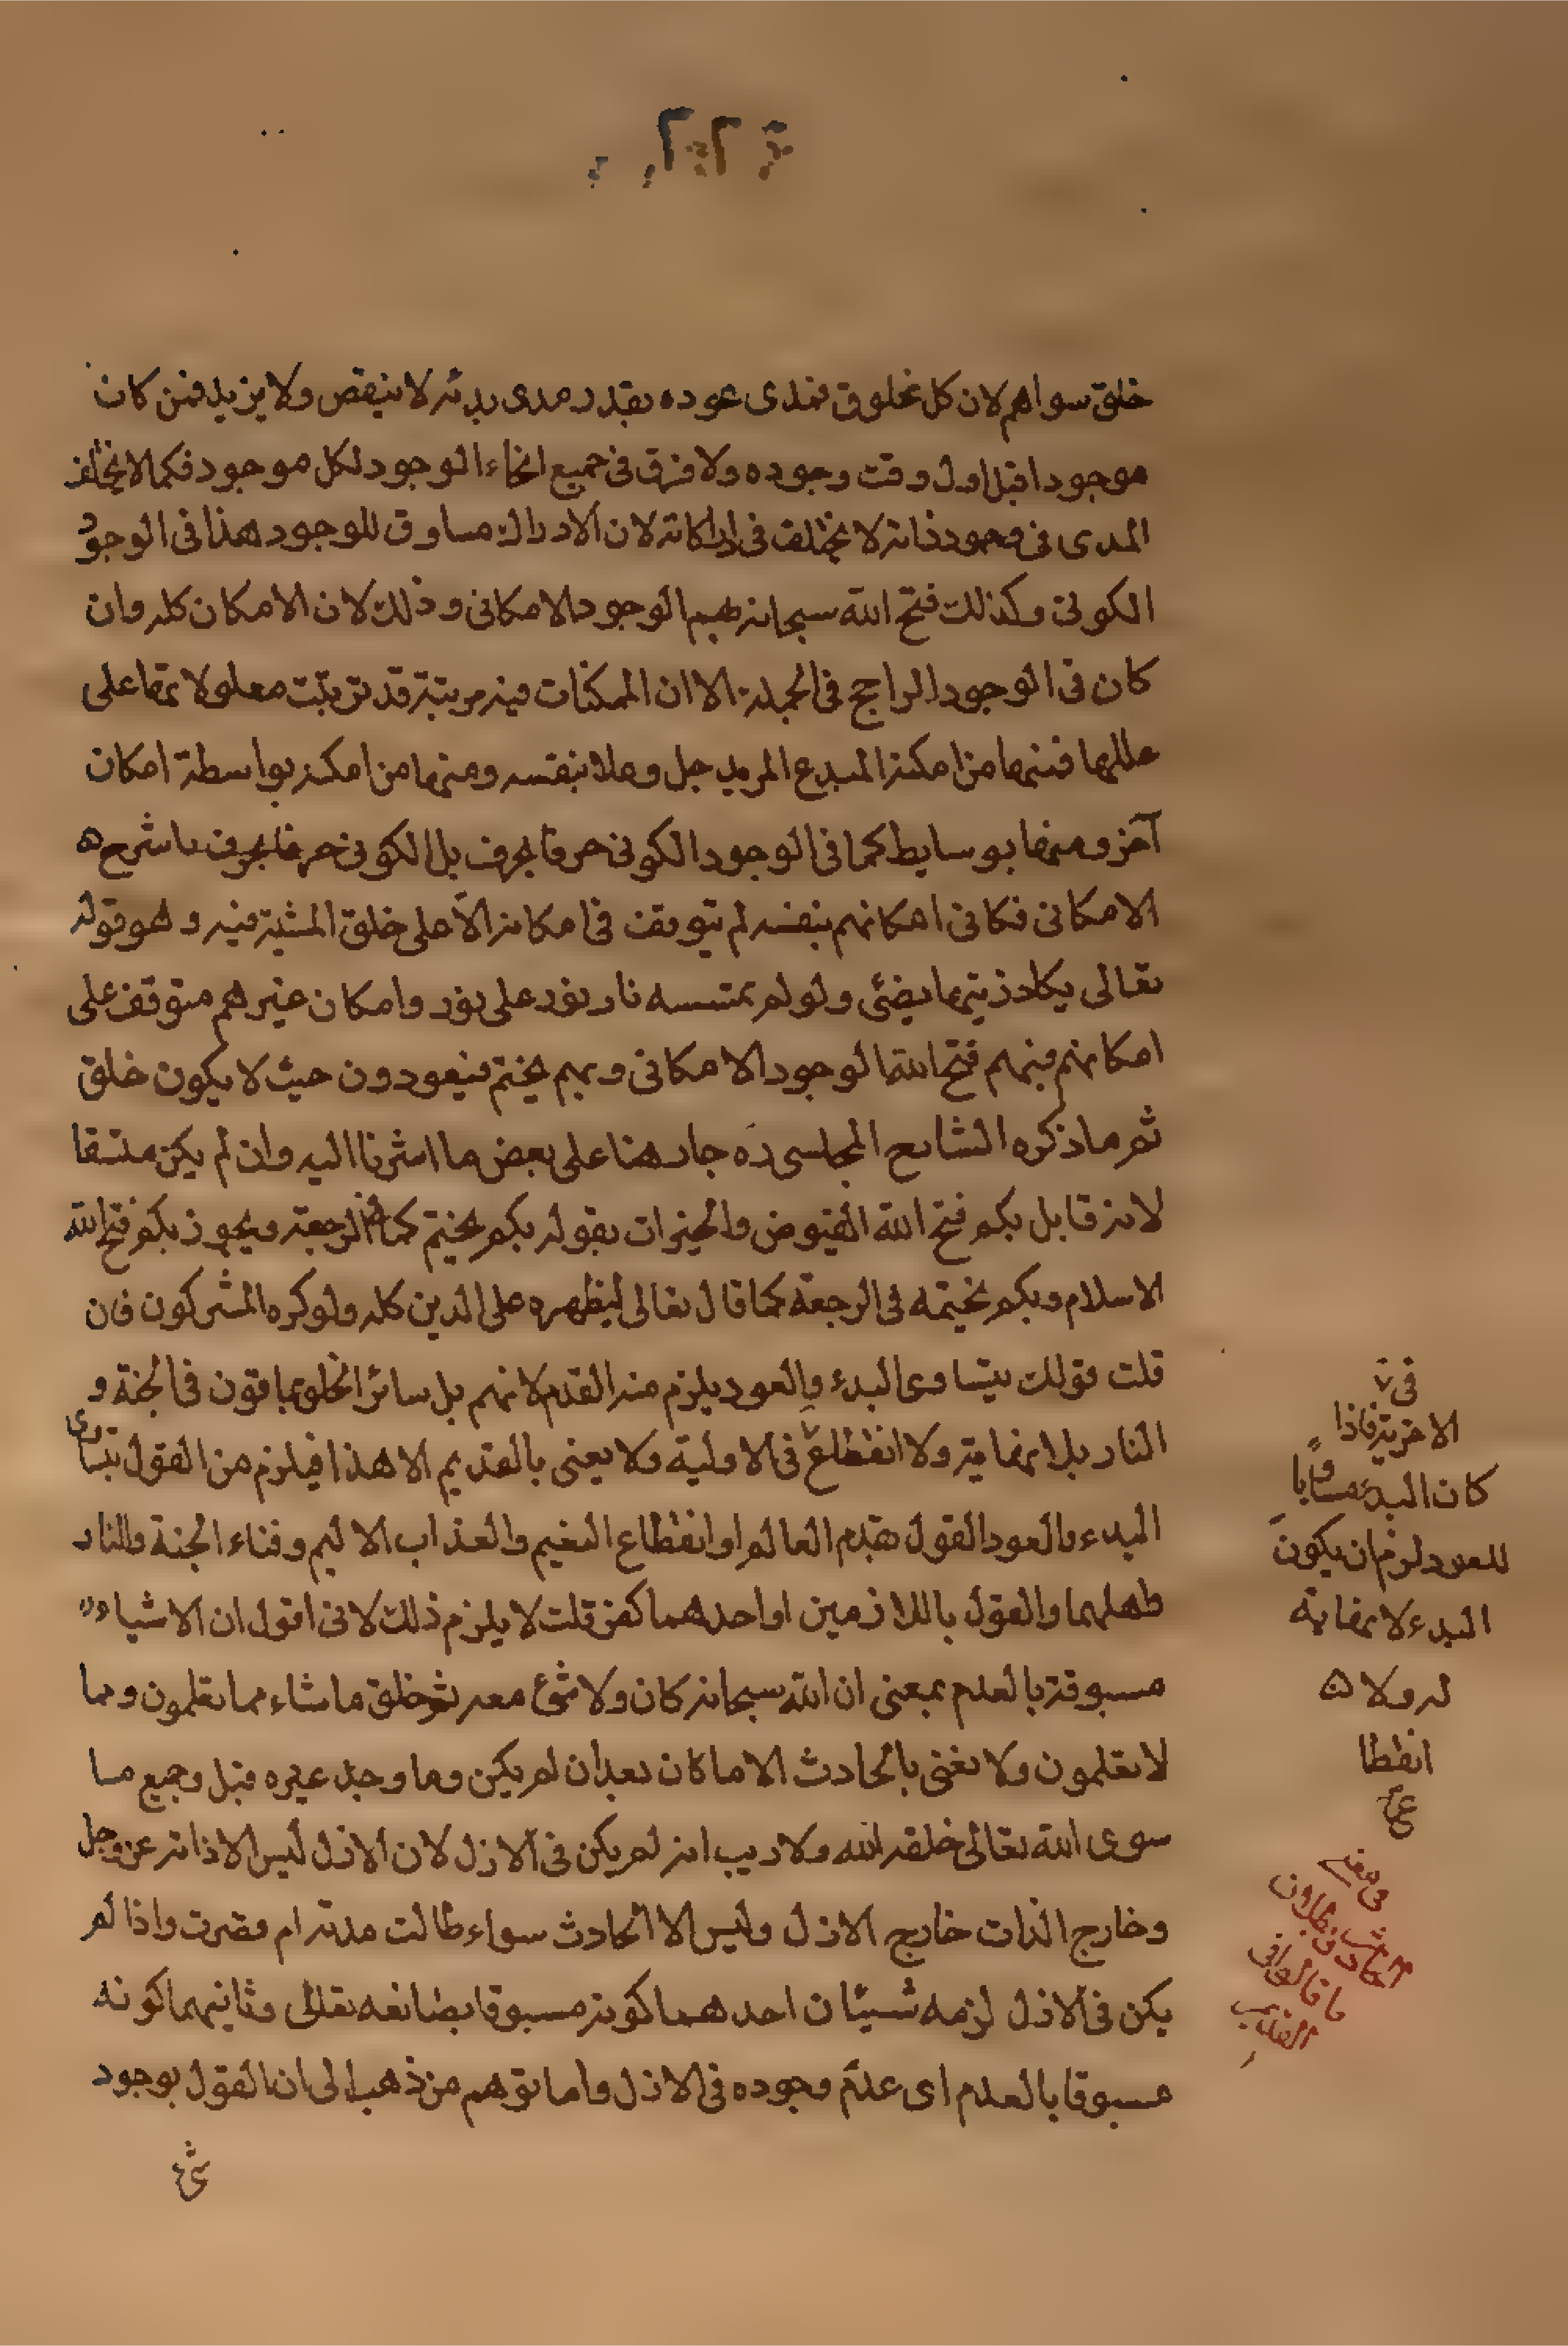 خلق سواهم لان كل مخلوق فمدى عوده بقدر مدى بدئه لا ينقص ولا يزيد فمن كان
موجودا قبل اول وقت وجوده ولا فرق فى جميع انحاء الوجود لكل موجود فكما لا يختلف
المدى فى وجود ذاته لا يختلف فى ادراكاته لان الادراك مساوق للوجود هذا فى الوجود
الكونى وكذلك فتح الله سبحانه بهم الوجود الامكانى وذلك لان الامكان كله وان
كان فى الوجود الراجح فى الجملة الا ان الممكنات فيه مرتبة قد ترتبت معلولاتها على
عللها فمنها من امكنه المبدع المريد جل وعلا بنفسه ومنها من امكنه بواسطة امكان
آخر ومنها بوسايط كما فى الوجود الكونى حرفا بحرف بل الكونى حرفا بحرف شرح
الامكانى فكانى امكانهم بنفسه لم يتوقف فى امكانه الا على خلق المشية فيه وهو قوله
تعالى يكاد زيتها يضئى ولو لم تمسسه نار نور على نور وامكان غيرهم متوقف على
امكانهم فبهم فتح الله الوجود الامكانى وبهم يختم فيعودون حيث لا يكون خلق
ثم ما ذكره الشارح المجلسى ره جار هنا على بعض ما اشرنا اليه وان لم يكن متسقا
لانه قابل بكم فتح الله الفيوض والخيرات بقوله بكم يختم كما فى الرجعة ويجوز بكم فتح الله
الاسلام وبكم يختمه فى الرجعة كما قال تعالى ليظهره على الدين كله ولو كره المشركون فان
قلت قولك يتساوى البدء والعود يلزم منه القدم لانهم بل سائر الخلق باقون فى الجنة و
النار بلا نهاية ولا انقطاع فى الاولية ولا يعنى بالقديم الا هذا فيلزم من القول بتساوى
البدء والعود القول بقدم العالم او انقطاع النعيم والعذاب الاليم وفناء الجنة والنار
واهلهما والقول باللازمين او احدهما كفر قلت لا يلزم ذلك لانى اقول ان الاشياء
مسبوقة بالعدم بمعنى ان الله سبحانه كان ولا شئ معه ثم خلق ما شاء مما تعلمون ومما
لا تعلمون ولا نعنى بالحادث الا ما كان بعد ان لم يكن وما وجد غيره قبل وجميع ما
سوى الله تعالى خلقه الله ولا ريب انه لم يكن فى الازل لان الازل ليس الا ذاته عز وجل
وخارج الذات خارج الازل وليس الا الحادث سواء طالت مدته ام قصرت واذا لم
يكن فى الازل لزمه شيئان احدهما كونه مسبوقا بصانعه تعالى وثانيهما كونه
مسبوقا بالعدم اى عدم وجوده فى الازل واما توهم من ذهب الى ان القول بوجود
شئ
فى
الاخرية فاذا
كان البدء مساويا
للعود لزم ان يكون
البدء لا نهاية
له ولا
انقطا
ع
فى معنى
الحادث وبطلان
ما قالوا فى
القديم